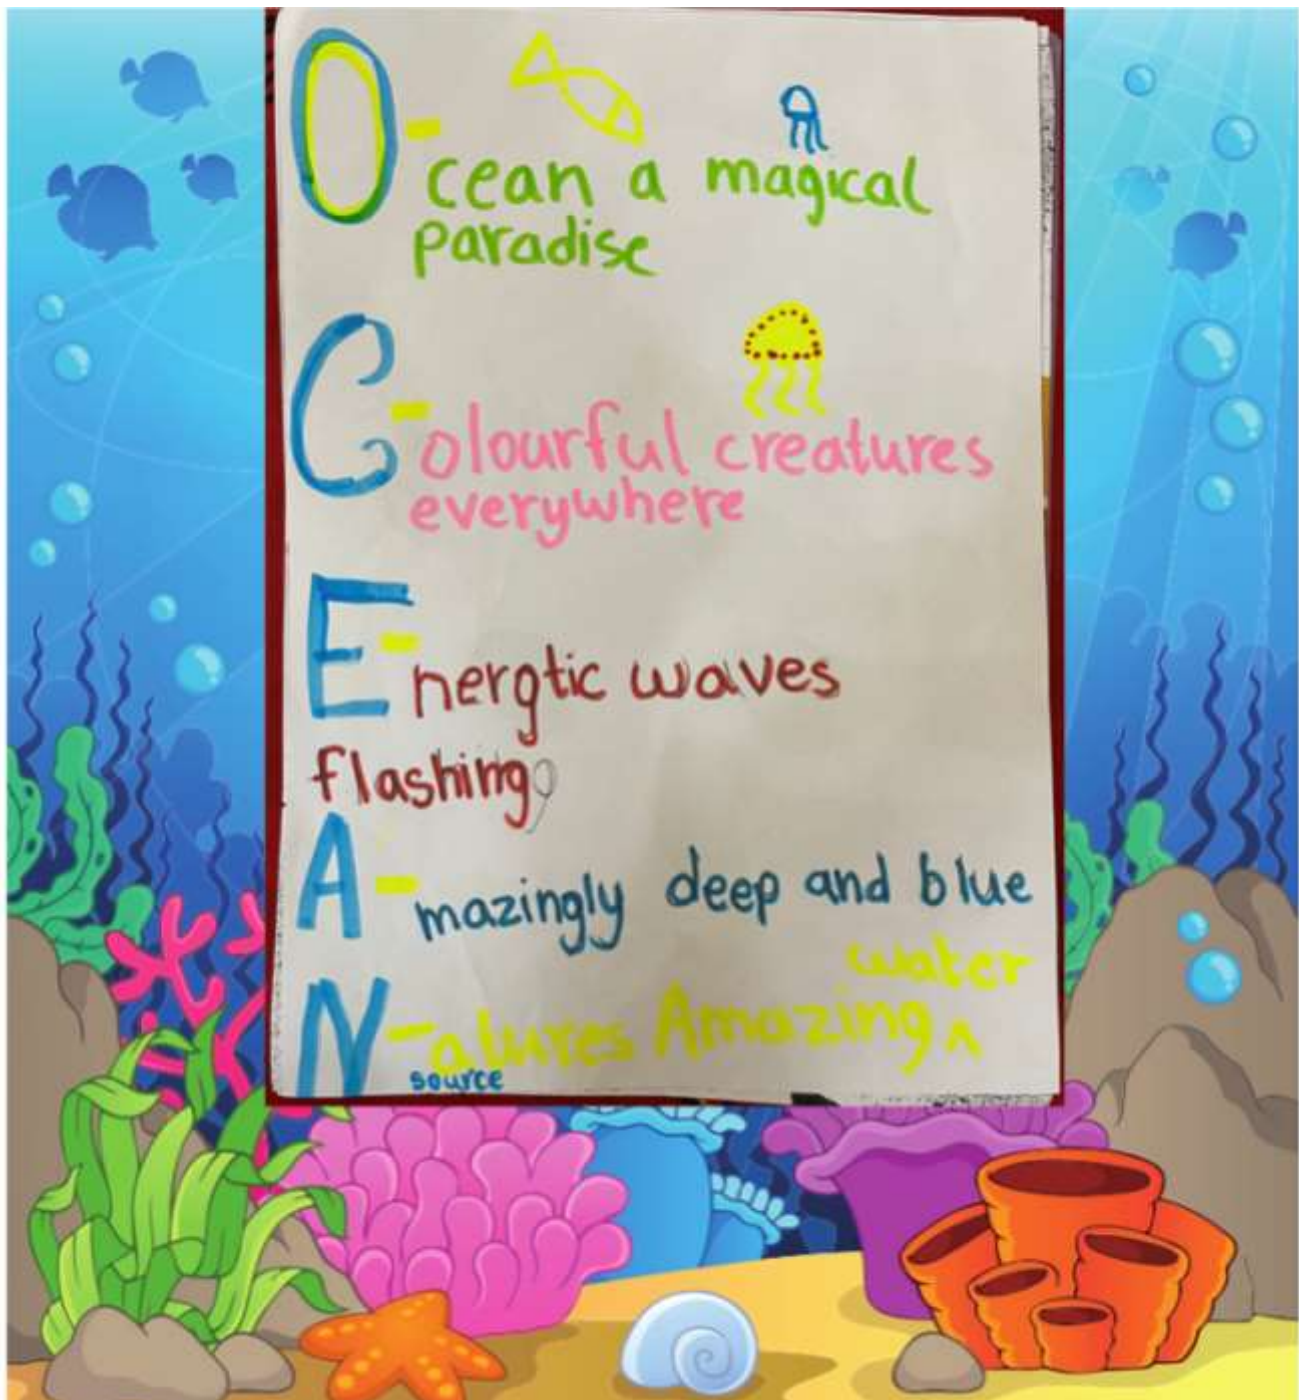 O-cean a magical
paradise
C-olourful creatures
everywhere
E-nergtic waves
flashing
A-mazingly deep and blue
water
N-atures Amazing ^
source